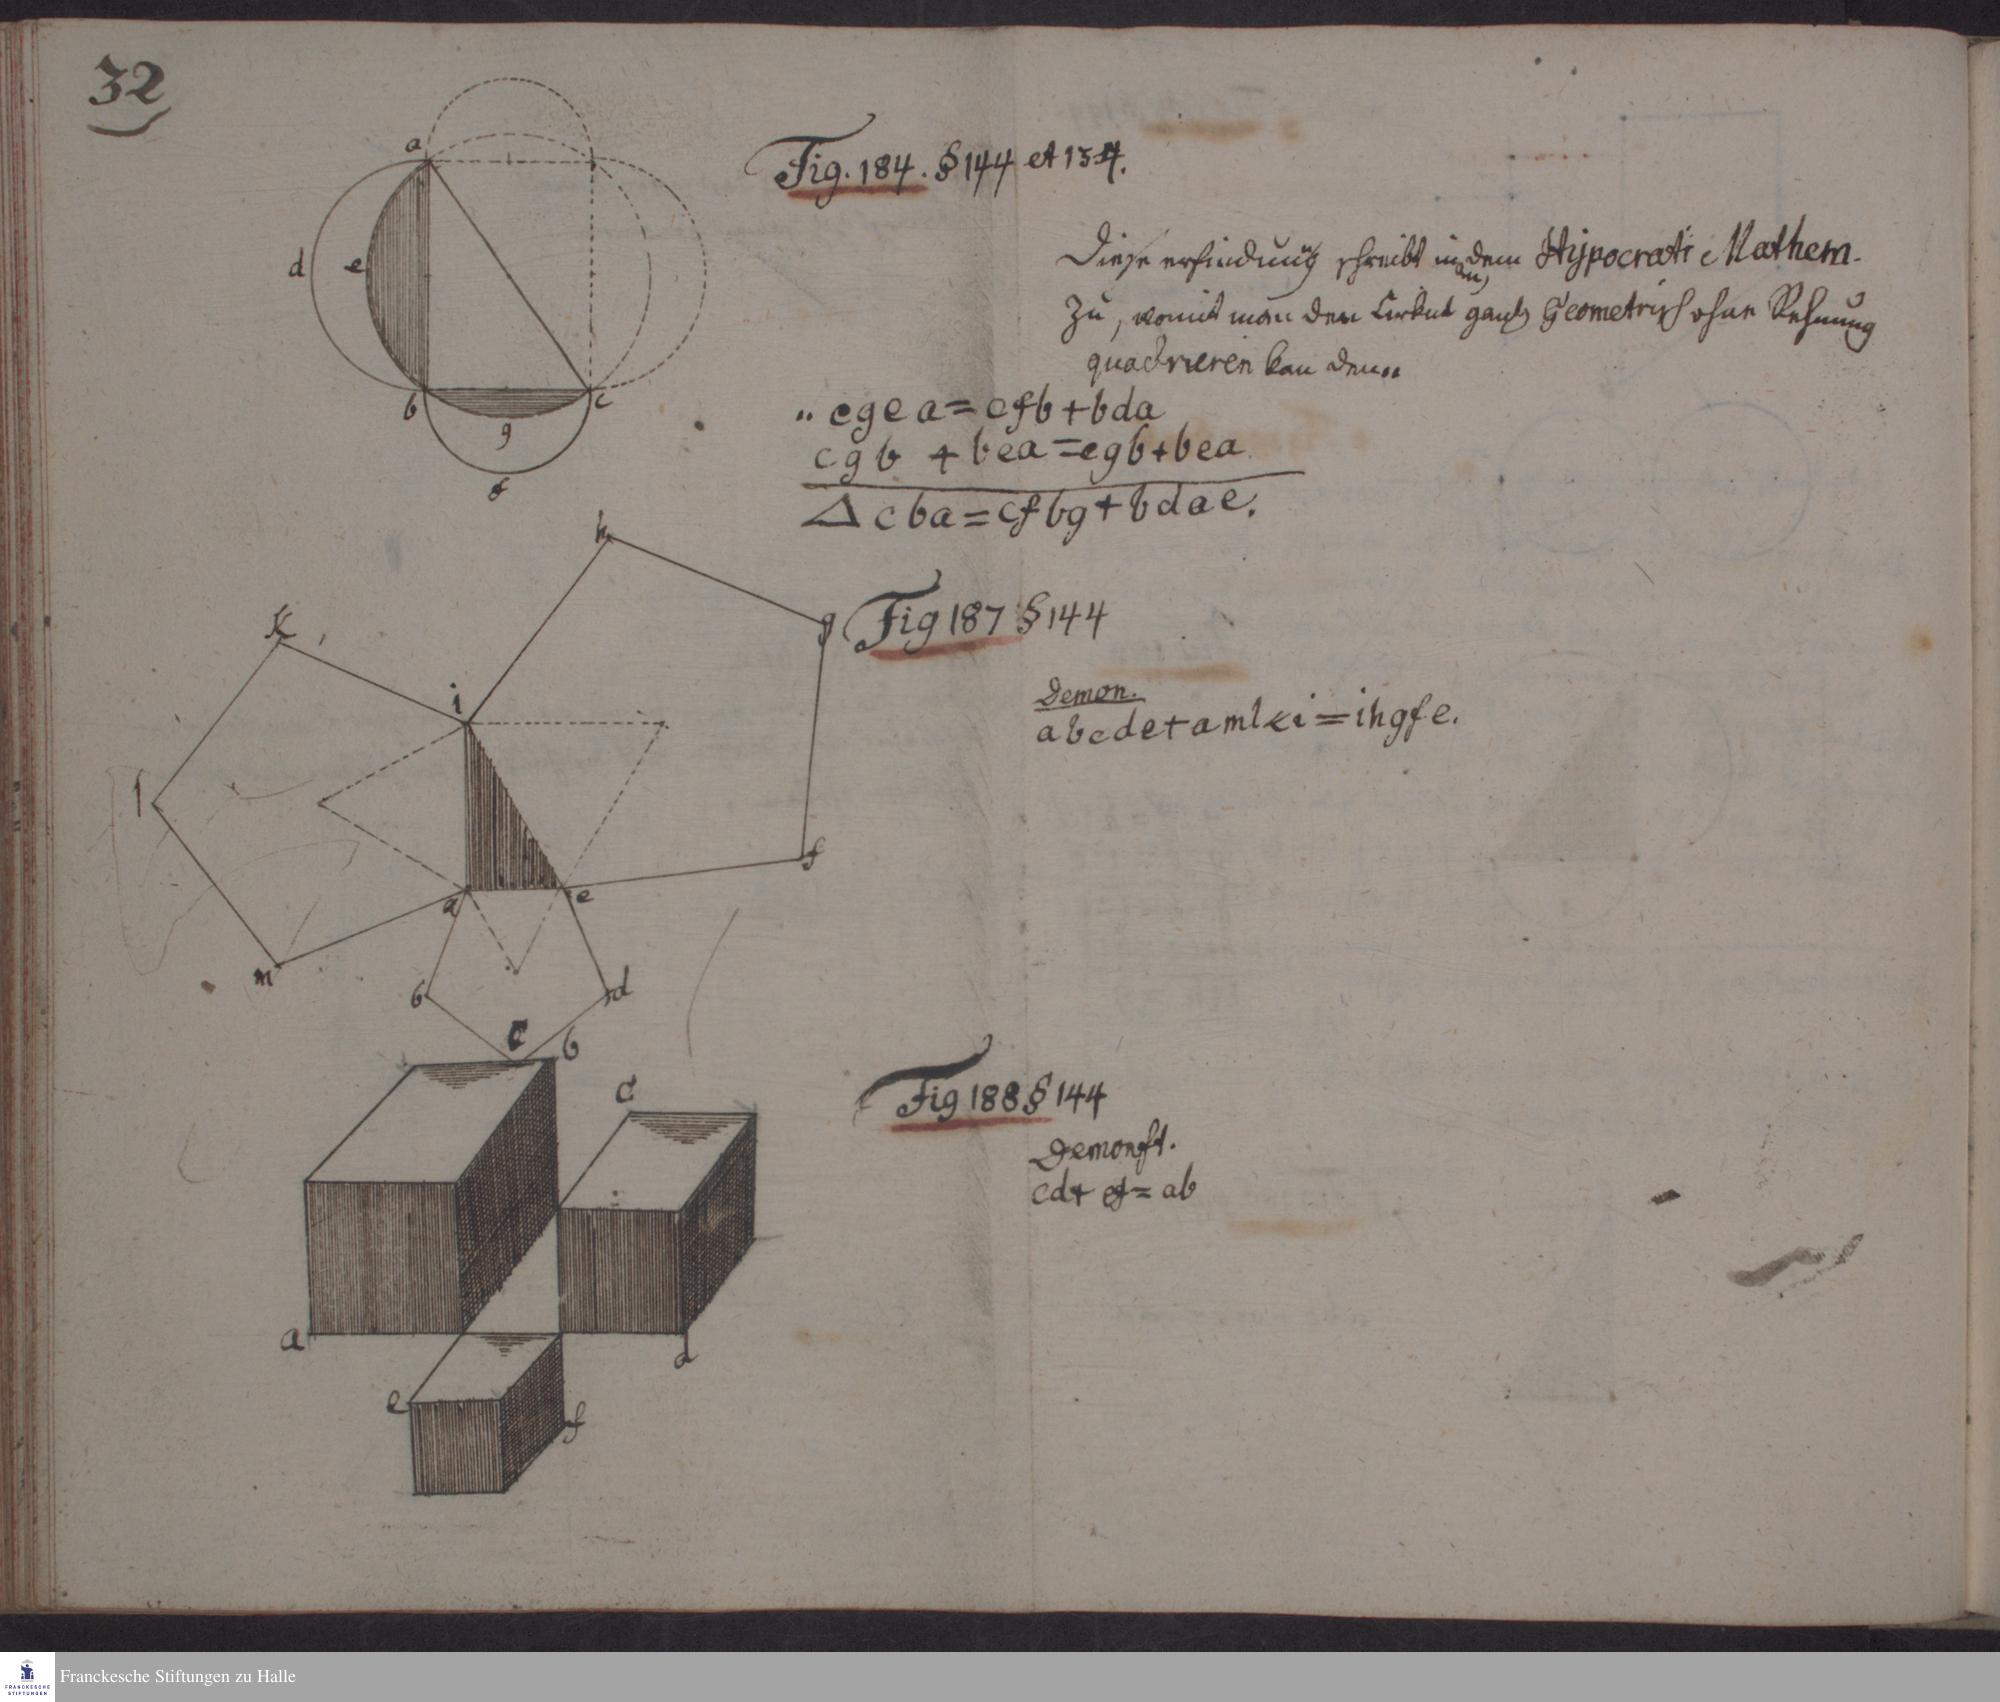 32
a
d
e
b
c
g
f
Fig. 184. § 144 et 154.
Diese erfindung schreibt man dem Hypocrati Mathem.
zu, womit man den Cirkul gantz Geometrisch ohne Rechnung
quadrieren kan den..
.. cgea = cfb + bda
cgb + bea = cgb + bea
△ cba = cfbg + bdae.
h
k
g
i
l
a
e
f
m
b
d
c
Fig 187 § 144
Demon.
abcde + amlki = ihgfe.
b
c
a
d
e
f
Fig 188 § 144
Demonst.
cd + ef = ab
Franckesche Stiftungen zu Halle
FRANCKESCHE
STIFTUNGEN